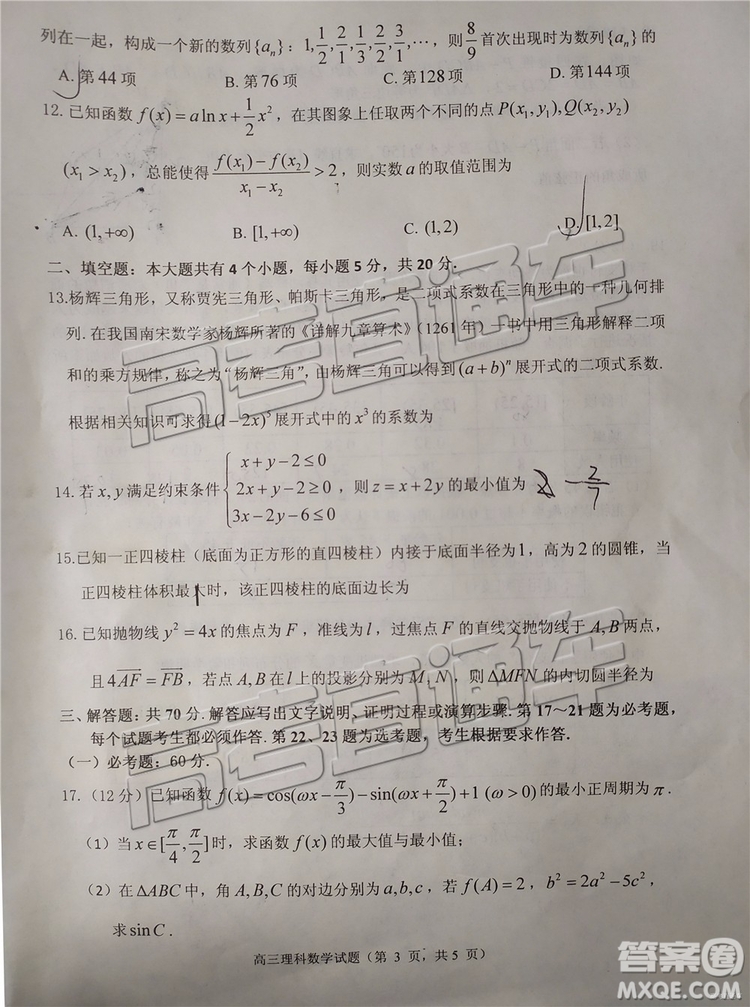 列在一起，构成一个新的数列{aₙ}：1,1/2,2/1,1/3,2/2,3/1,⋯，则8/9首次出现时为数列{aₙ}的
A. 第44项 B. 第76项 C. 第128项 D. 第144项
12. 已知函数 f(x)=a ln x+1/2 x²，在其图象上任取两个不同的点 P(x₁,y₁),Q(x₂,y₂)
(x₁>x₂)，总能使得 (f(x₁)−f(x₂))/(x₁−x₂)>2，则实数 a 的取值范围为
A. (1,+∞) B. [1,+∞) C. (1,2) D. [1,2]
二、填空题：本大题共有4个小题，每小题5分，共20分.
13.杨辉三角形，又称贾宪三角形、帕斯卡三角形，是二项式系数在三角形中的一种几何排
列.在我国南宋数学家杨辉所著的《详解九章算术》（1261年）一书中用三角形解释二项
和的乘方规律，称之为“杨辉三角”，由杨辉三角可以得到(a+b)ⁿ展开式的二项式系数.
根据相关知识可求得(1−2x)⁵展开式中的x³的系数为
14.若x,y满足约束条件{x+y−2≤0 2x+y−2≥0 3x−2y−6≤0，则z=x+2y的最小值为 −2/7
15.已知一正四棱柱（底面为正方形的直四棱柱）内接于底面半径为1，高为2的圆锥，当
正四棱柱体积最大时，该正四棱柱的底面边长为
16.已知抛物线y²=4x的焦点为F，准线为l，过焦点F的直线交抛物线于A,B两点，
且4AF=FB，若点A,B在l上的投影分别为M,N，则ΔMFN的内切圆半径为
三、解答题：共70分.解答应写出文字说明、证明过程或演算步骤.第17～21题为必考题，
每个试题考生都必须作答.第22、23题为选考题，考生根据要求作答.
（一）必考题：60分.
17.（12分）已知函数 f(x)=cos(ωx−π/3)−sin(ωx+π/2)+1 (ω>0)的最小正周期为π.
（1）当x∈[π/4,π/2]时，求函数f(x)的最大值与最小值；
（2）在ΔABC中，角A,B,C的对边分别为a,b,c，若f(A)=2，b²=2a²−5c²，
求sinC.
高三理科数学试题（第 3 页，共5 页）
高考直通车
高考直通车
答案圈
MXQE.COM